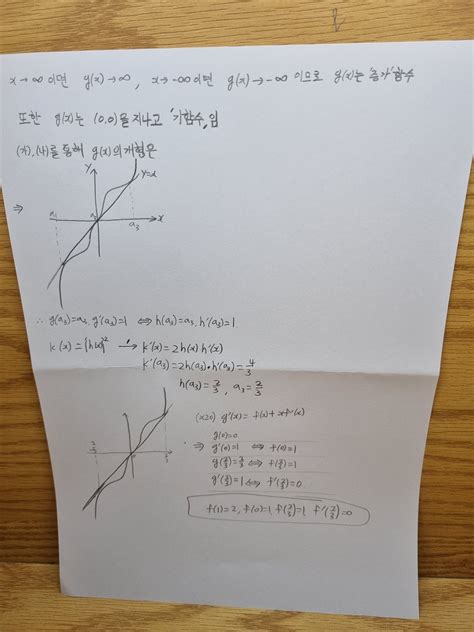 x→∞이면 g(x)→∞, x→-∞이면 g(x)→-∞ 이므로 g(x)는 '증가'함수
또한 g(x)는 (0,0)을 지나고 '기함수'임
(가),(나)를 통해 g(x)의 개형은
y
y=x
⇒
a₁
a₃
x
∴ g(a₃)=a₃, g'(a₃)=1 ⇔ h(a₃)=a₃, h'(a₃)=1
k(x)={h(x)}² → k'(x)=2h(x)h'(x)
k'(a₃)=2h(a₃)·h'(a₃)=4/3
h(a₃)=2/3, a₃=2/3
(x≥0) g'(x)=f(x)+xf'(x)
g(0)=0
⇒ g'(0)=1 ⇔ f(0)=1
g(2/3)=2/3 ⇔ f(2/3)=1
g'(2/3)=1 ⇔ f'(2/3)=0
f(1)=2, f(0)=1, f(2/3)=1 f'(2/3)=0